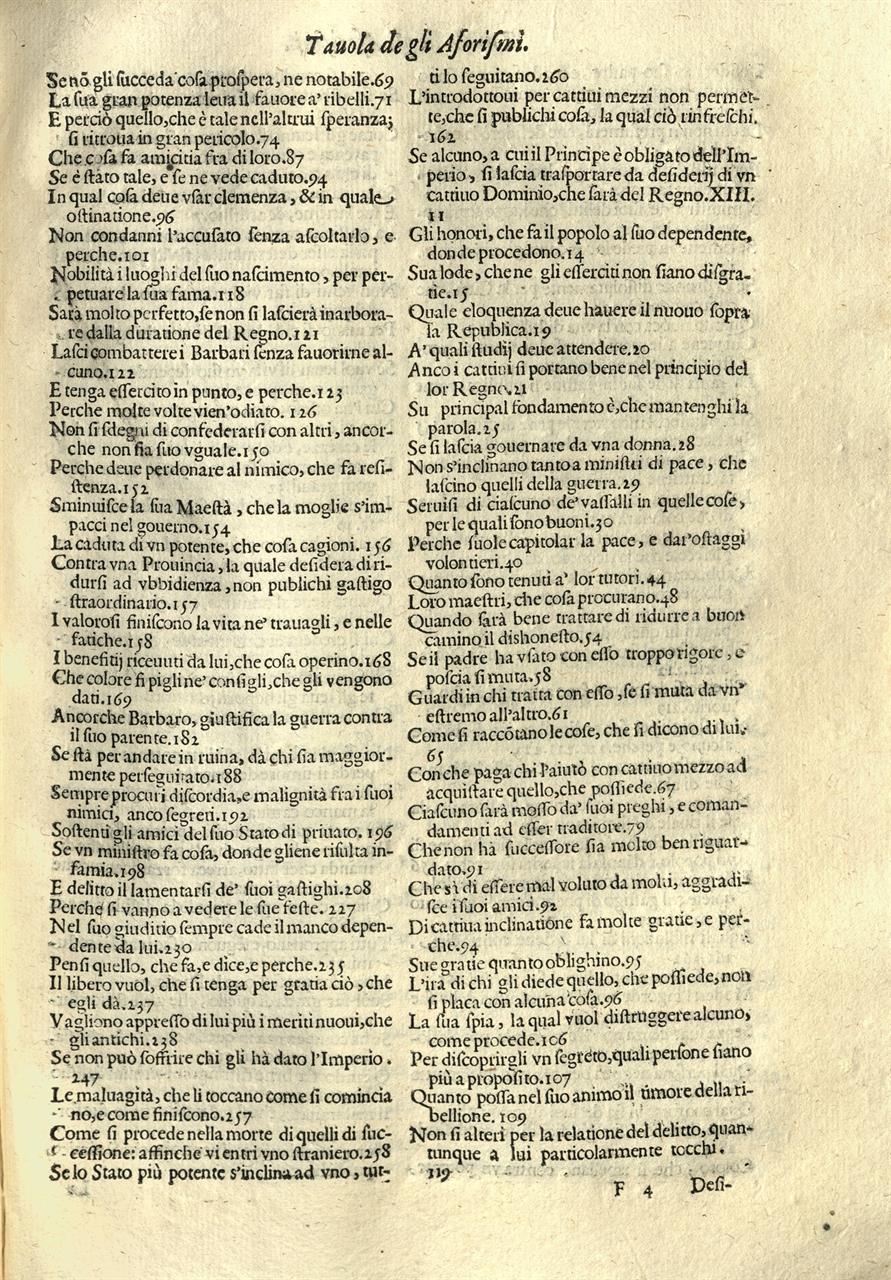 Tauola de gli Aforismi.
Se nõ gli succeda cosa prospera, ne notabile.69
La sua gran potenza leua il fauore a' ribelli.71
E perciò quello,che è tale nell'altrui speranza;
si ritroua in gran pericolo.74
Che cosa fa amicitia fra di loro.87
Se è stato tale, e se ne vede caduto.94
In qual cosa deue vsar clemenza, & in quale
ostinatione.96
Non condanni l'accusato senza ascoltarlo, e
perche.101
Nobilità i luoghi del suo nascimento, per per-
petuare la sua fama.118
Sarà molto perfetto,se non si lascierà inarbora-
re dalla duratione del Regno.121
Lasci combattere i Barbari senza fauorirne al-
cuno.122
E tenga essercito in punto, e perche.123
Perche molte volte vien'odiato. 126
Non si sdegni di confederarsi con altri, ancor-
che non sia suo vguale.150
Perche deue perdonare al nimico, che fa resi-
stenza.152
Sminuisce la sua Maestà, che la moglie s'im-
pacci nel gouerno.154
La caduta di vn potente, che cosa cagioni. 156
Contra vna Prouincia, la quale desidera di ri-
dursi ad vbbidienza, non publichi gastigo
straordinario.157
I valorosi finiscono la vita ne' trauagli, e nelle
fatiche.158
I benefitij riceuuti da lui,che cosa operino.168
Che colore si pigli ne' consigli,che gli vengono
dati.169
Ancorche Barbaro, giustifica la guerra contra
il suo parente.182
Se stà per andare in ruina, dà chi sia maggior-
mente perseguitato.188
Sempre procuri discordia,e malignità fra i suoi
nimici, anco segreti.192
Sostenti gli amici del suo Stato di priuato. 196
Se vn ministro fa cosa, donde gliene risulta in-
famia.198
E delitto il lamentarsi de' suoi gastighi.208
Perche si vanno a vedere le sue feste. 227
Nel suo giuditio sempre cade il manco depen-
dente da lui.230
Pensi quello, che fa,e dice,e perche.235
Il libero vuol, che si tenga per gratia ciò, che
egli dà.237
Vagliono appresso di lui più i meriti nuoui,che
gli antichi.238
Se non può soffrire chi gli hà dato l'Imperio.
247
Le maluagità, che li toccano come si comincia
no,e come finiscono.257
Come si procede nella morte di quelli di suc-
cessione: affinche vi entri vno straniero.258
Se lo Stato più potente s'inclina ad vno, tut-
ti lo seguitano.260
L'introdottoui per cattiui mezzi non permet-
te,che si publichi cosa, la qual ciò rinfreschi.
162
Se alcuno, a cui il Principe è obligato dell'Im-
perio, si lascia trasportare da desiderij di vn
cattiuo Dominio,che sarà del Regno.XIII.
11
Gli honori, che fa il popolo al suo dependente,
donde procedono.14
Sua lode, che ne gli esserciti non siano disgra-
tie.15
Quale eloquenza deue hauere il nuouo sopra
la Republica.19
A' quali studij deue attendere.20
Anco i cattiui si portano bene nel principio del
lor Regno.21
Su principal fondamento è,che mantenghi la
parola.25
Se si lascia gouernare da vna donna.28
Non s'inclinano tanto a ministri di pace, che
lascino quelli della guerra.29
Seruisi di ciascuno de' vassalli in quelle cose,
per le quali sono buoni.30
Perche suole capitolar la pace, e dar'ostaggi
volontieri.40
Quanto sono tenuti a' lor tutori.44
Loro maestri, che cosa procurano.48
Quando sarà bene trattare di ridurre a buon
camino il dishonesto.54
Se il padre ha vsato con esso troppo rigore, e
poscia si muta.58
Guardi in chi tratta con esso, se si muta da vn'
estremo all'altro.61
Come si raccõtano le cose, che si dicono di lui.
65
Con che paga chi l'aiutò con cattiuo mezzo ad
acquistare quello,che possiede.67
Ciascuno sarà mosso da' suoi preghi, e coman-
damenti ad esser traditore.79
Che non hà successore sia molto ben riguar-
dato.91
Che sì di essere mal voluto da molti, aggradi-
sce i suoi amici.92
Di cattiua inclinatione fa molte gratie, e per-
che.94
Sue gratie quanto oblighino.95
L'ira di chi gli diede quello, che possiede, non
si placa con alcuna cosa.96
La sua spia, la qual vuol distruggere alcuno,
come procede.106
Per discoprirgli vn segreto,quali persone siano
più a proposito.107
Quanto possa nel suo animo il timore della ri-
bellione. 109
Non si alteri per la relatione del delitto, quan-
tunque a lui particolarmente tocchi.
119
F 4 Desi-